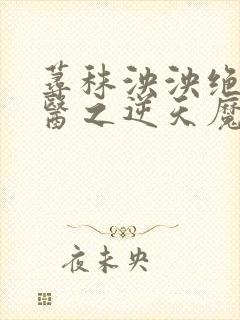 蕁秣泱泱绝
醫之逆天魔
夜未央